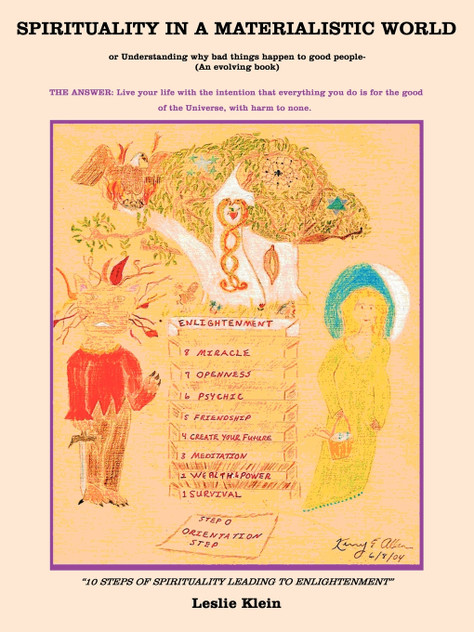 SPIRITUALITY IN A MATERIALISTIC WORLD
or Understanding why bad things happen to good people-
(An evolving book)
THE ANSWER: Live your life with the intention that everything you do is for the good
of the Universe, with harm to none.
ENLIGHTENMENT
8 MIRACLE
7 OPENNESS
6 PSYCHIC
5 FRIENDSHIP
4 CREATE YOUR FUTURE
3 MEDITATION
2 WEALTH & POWER
1 SURVIVAL
STEP 0
ORIENTATION
STEP
6/8/04
"10 STEPS OF SPIRITUALITY LEADING TO ENLIGHTENMENT"
Leslie Klein